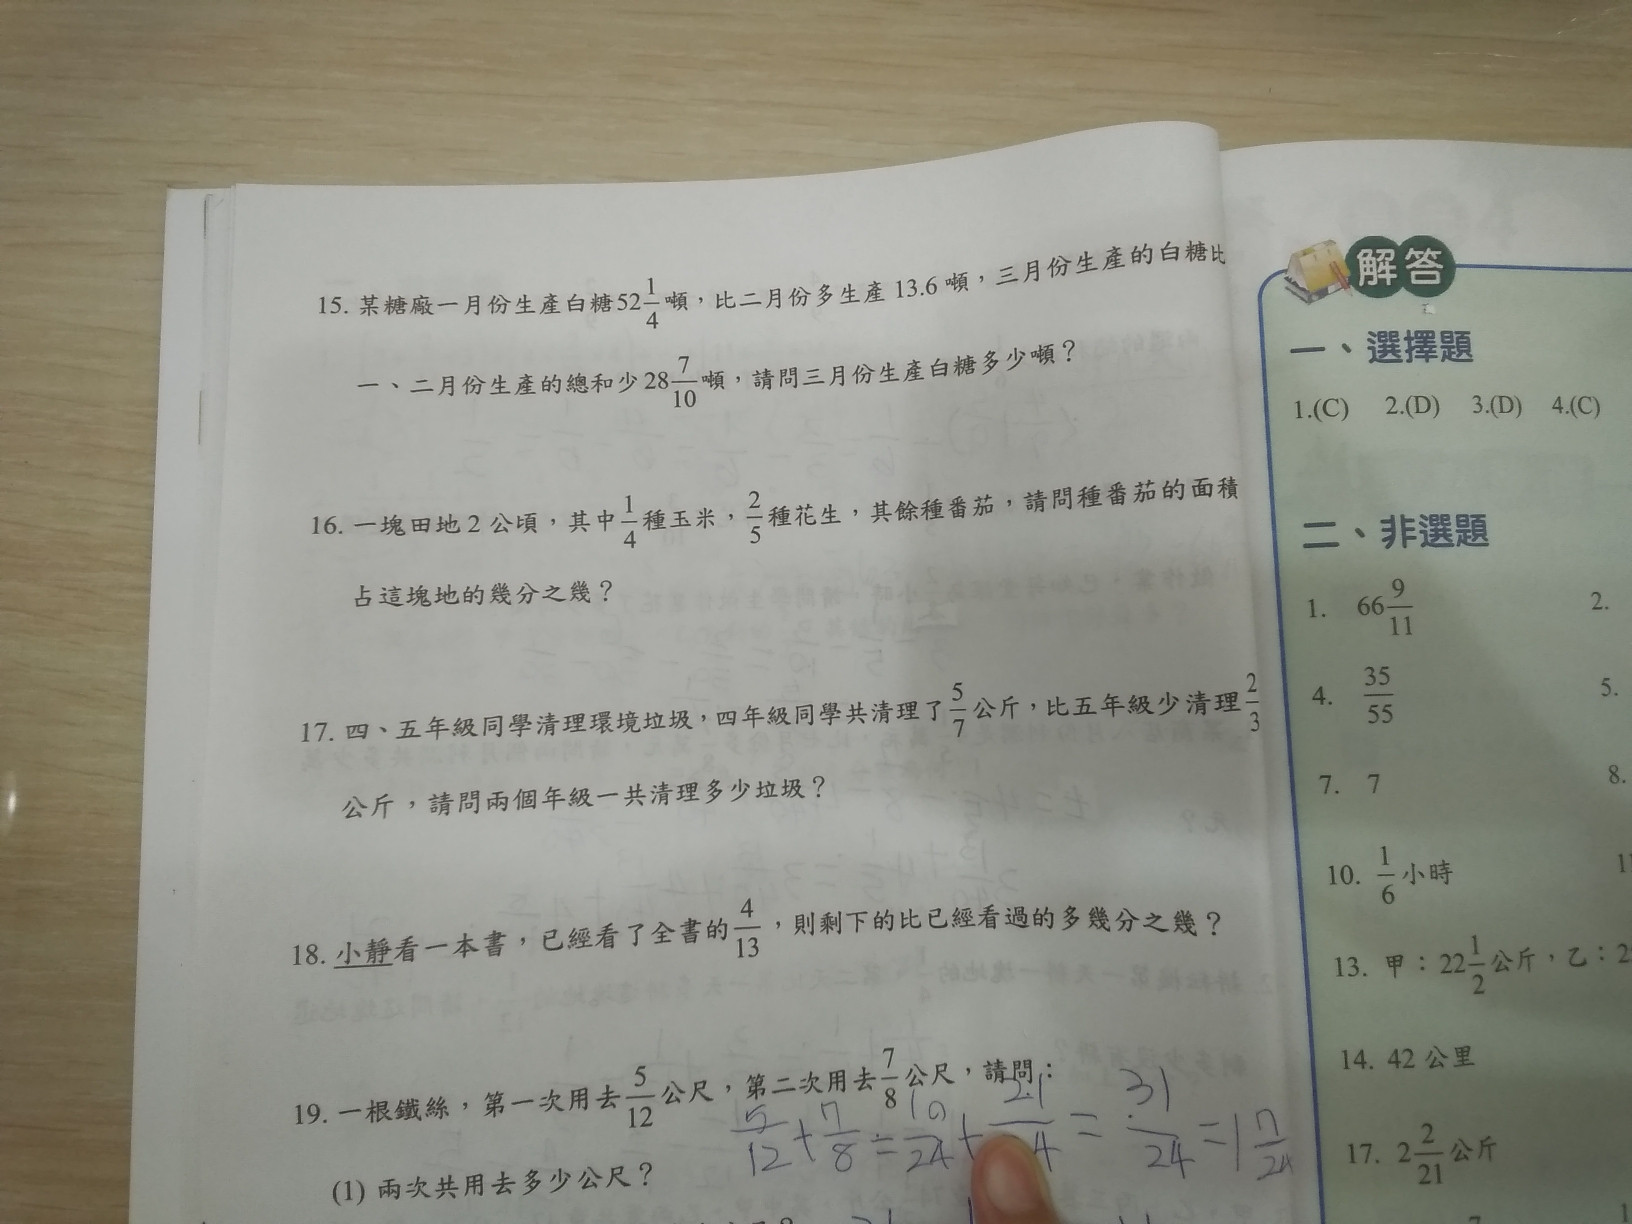 15. 某糖廠一月份生產白糖52 1/4 噸，比二月份多生產 13.6 噸，三月份生產的白糖比
一、二月份生產的總和少 28 7/10 噸，請問三月份生產白糖多少噸？
16. 一塊田地 2 公頃，其中 1/4 種玉米，2/5 種花生，其餘種番茄，請問種番茄的面積
占這塊地的幾分之幾？
17. 四、五年級同學清理環境垃圾，四年級同學共清理了 5/7 公斤，比五年級少清理 2/3
公斤，請問兩個年級一共清理多少垃圾？
18. 小靜看一本書，已經看了全書的 4/13，則剩下的比已經看過的多幾分之幾？
19. 一根鐵絲，第一次用去 5/12 公尺，第二次用去 7/8 公尺，請問：
(1) 兩次共用去多少公尺？
解答
一、選擇題
1.(C) 2.(D) 3.(D) 4.(C)
二、非選題
1. 66 9/11 2.
4. 35/55 5.
7. 7 8.
10. 1/6 小時
13. 甲：22 1/2 公斤，乙：2
14. 42 公里
17. 2 2/21 公斤